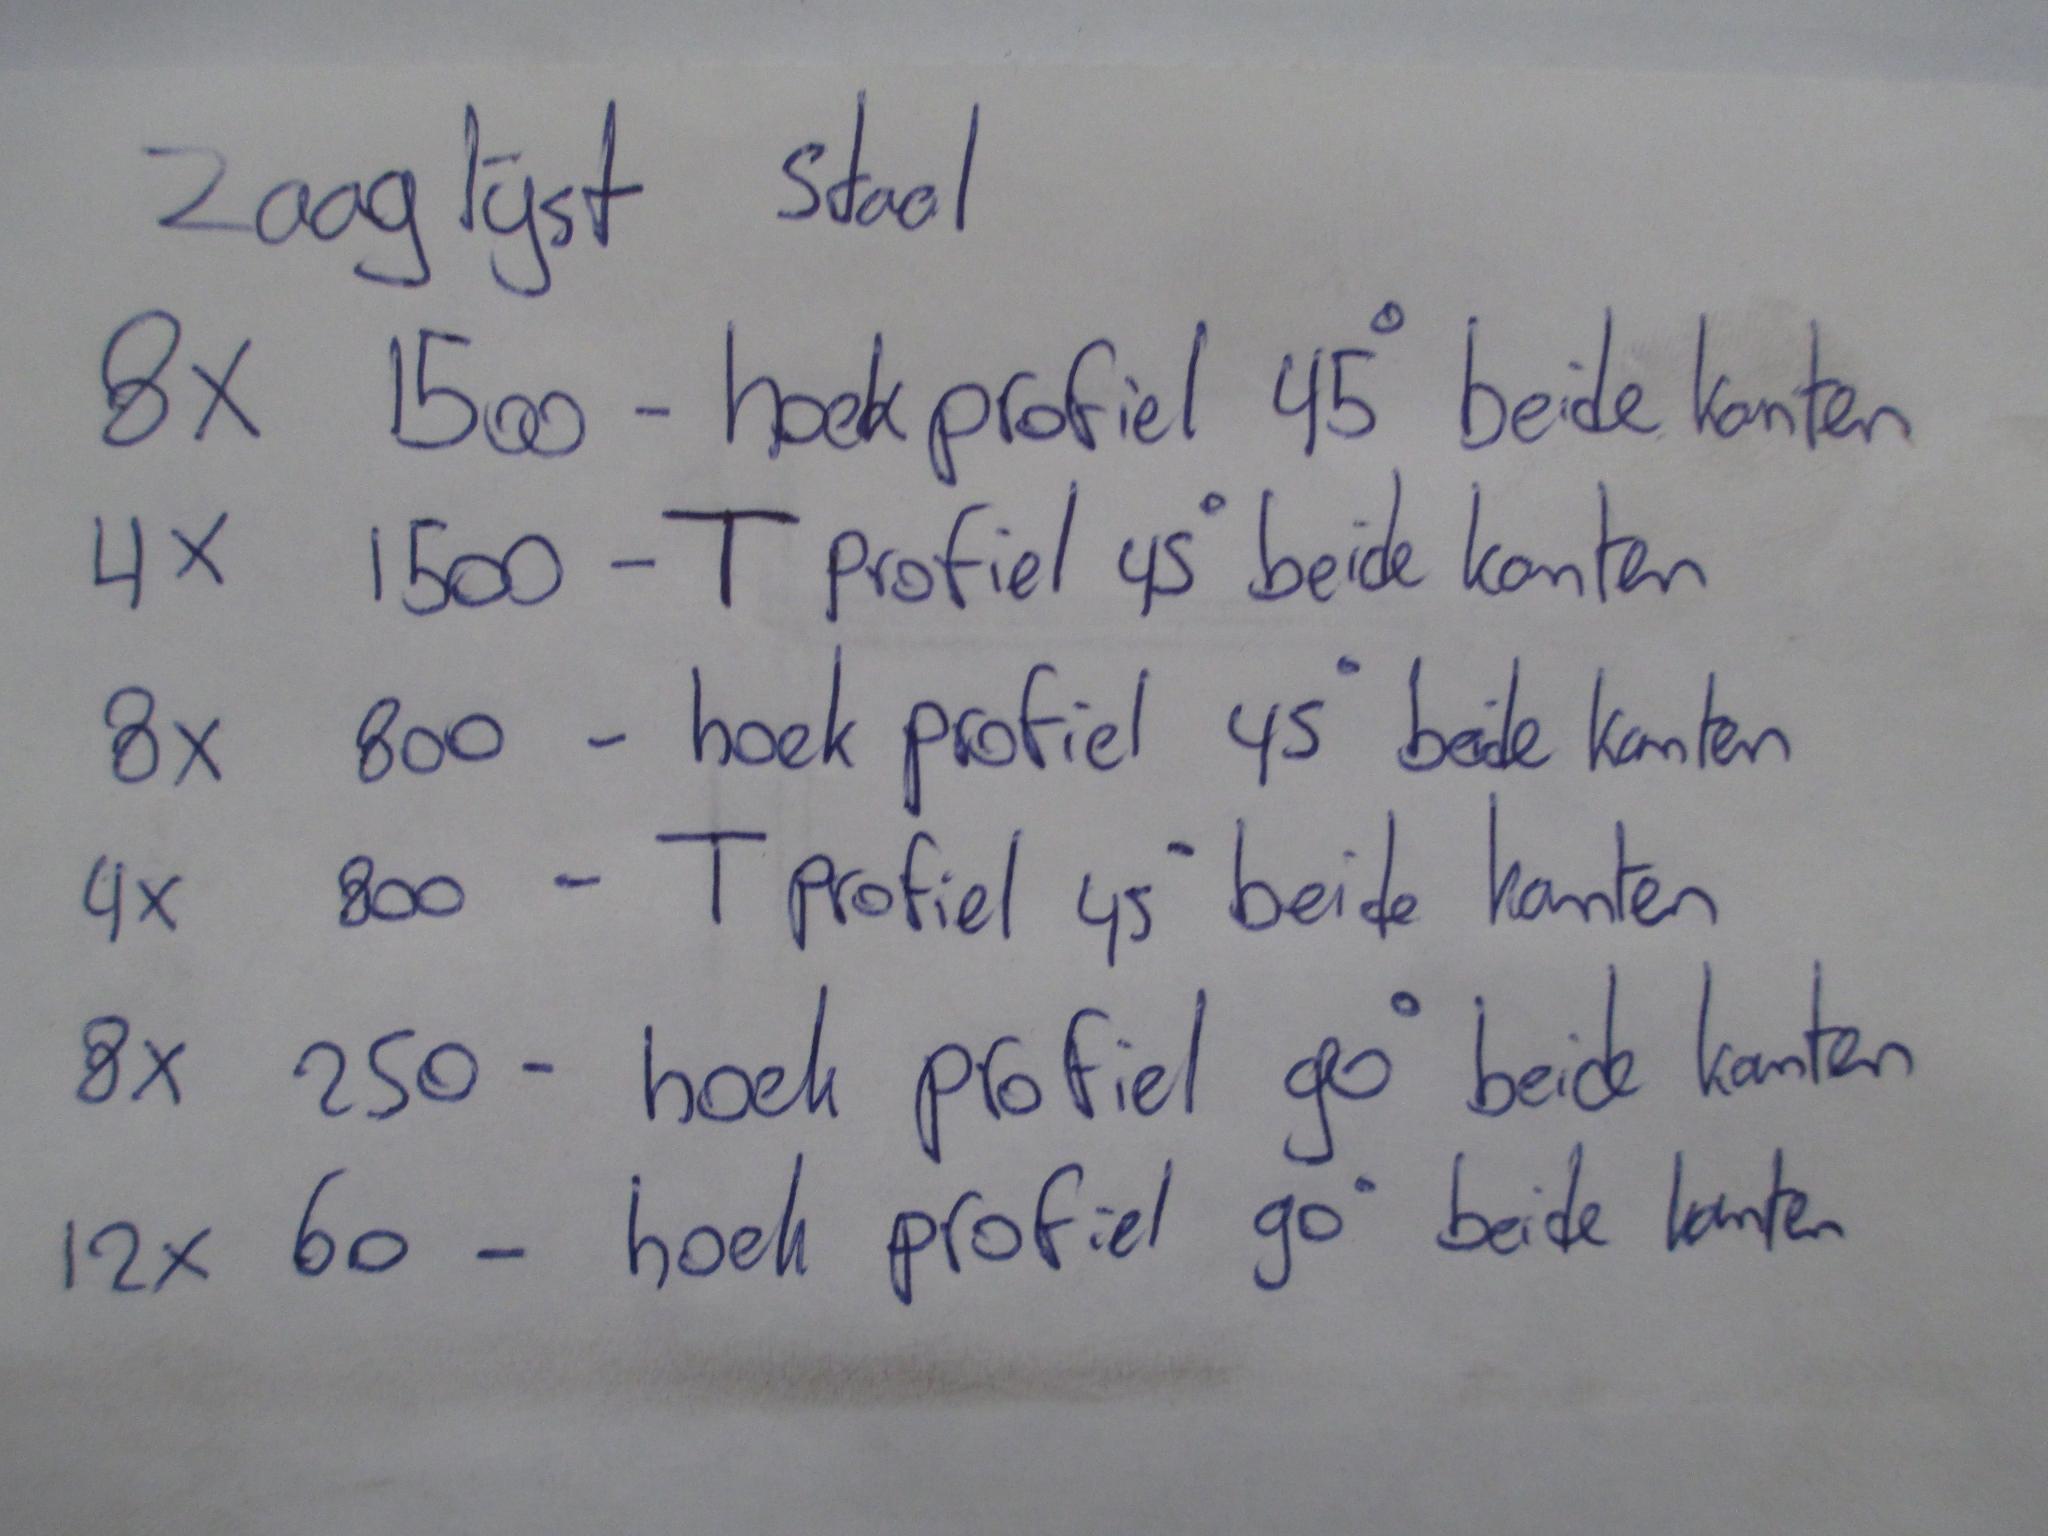 Zaaglijst staal
8x 1500 - hoekprofiel 45° beide kanten
4x 1500 - T profiel 45° beide kanten
8x 800 - hoek profiel 45° beide kanten
4x 800 - T profiel 45° beide kanten
8x 250 - hoek profiel 90° beide kanten
12x 60 - hoek profiel 90° beide kanten